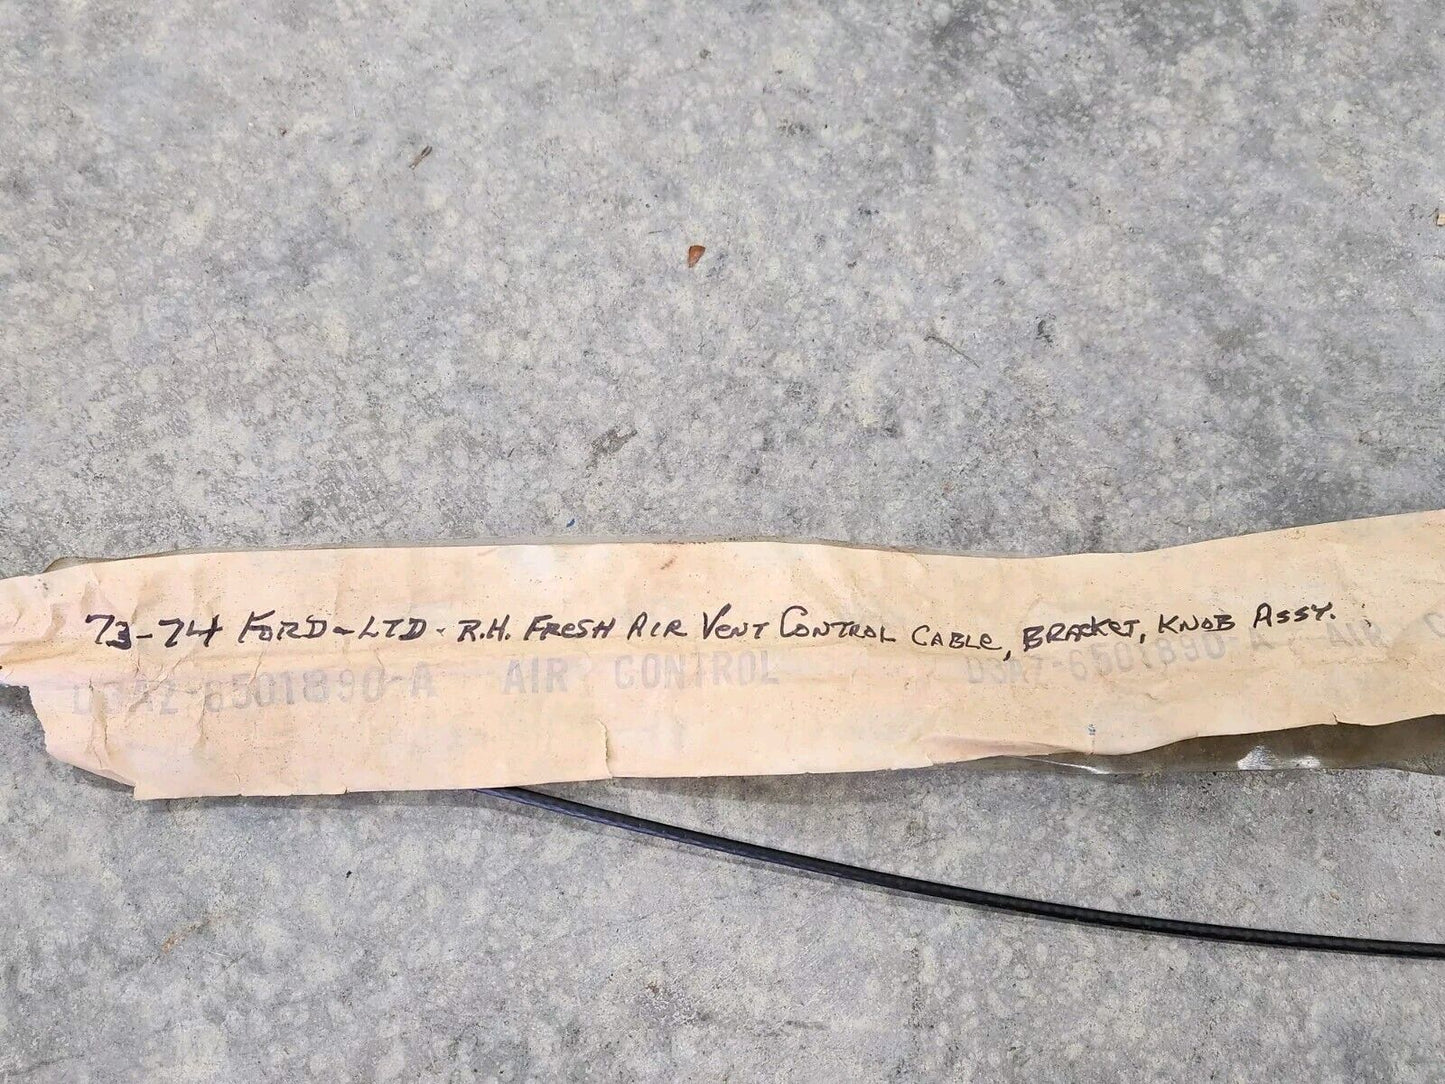 73-74 FORD-LTD- R.H. FRESH AIR VENT CONTROL CABLE, BRACKET, KNOB ASSY.
D3AZ-6501890-A AIR CONTROL D3AZ-6501890-A AIR C